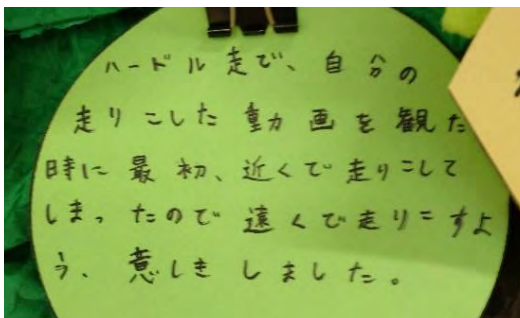 ハードル走で、自分の
走りこした動画を観た
時に最初、近くで走りこして
しまったので遠くで走りこすよ
う、意しきしました。